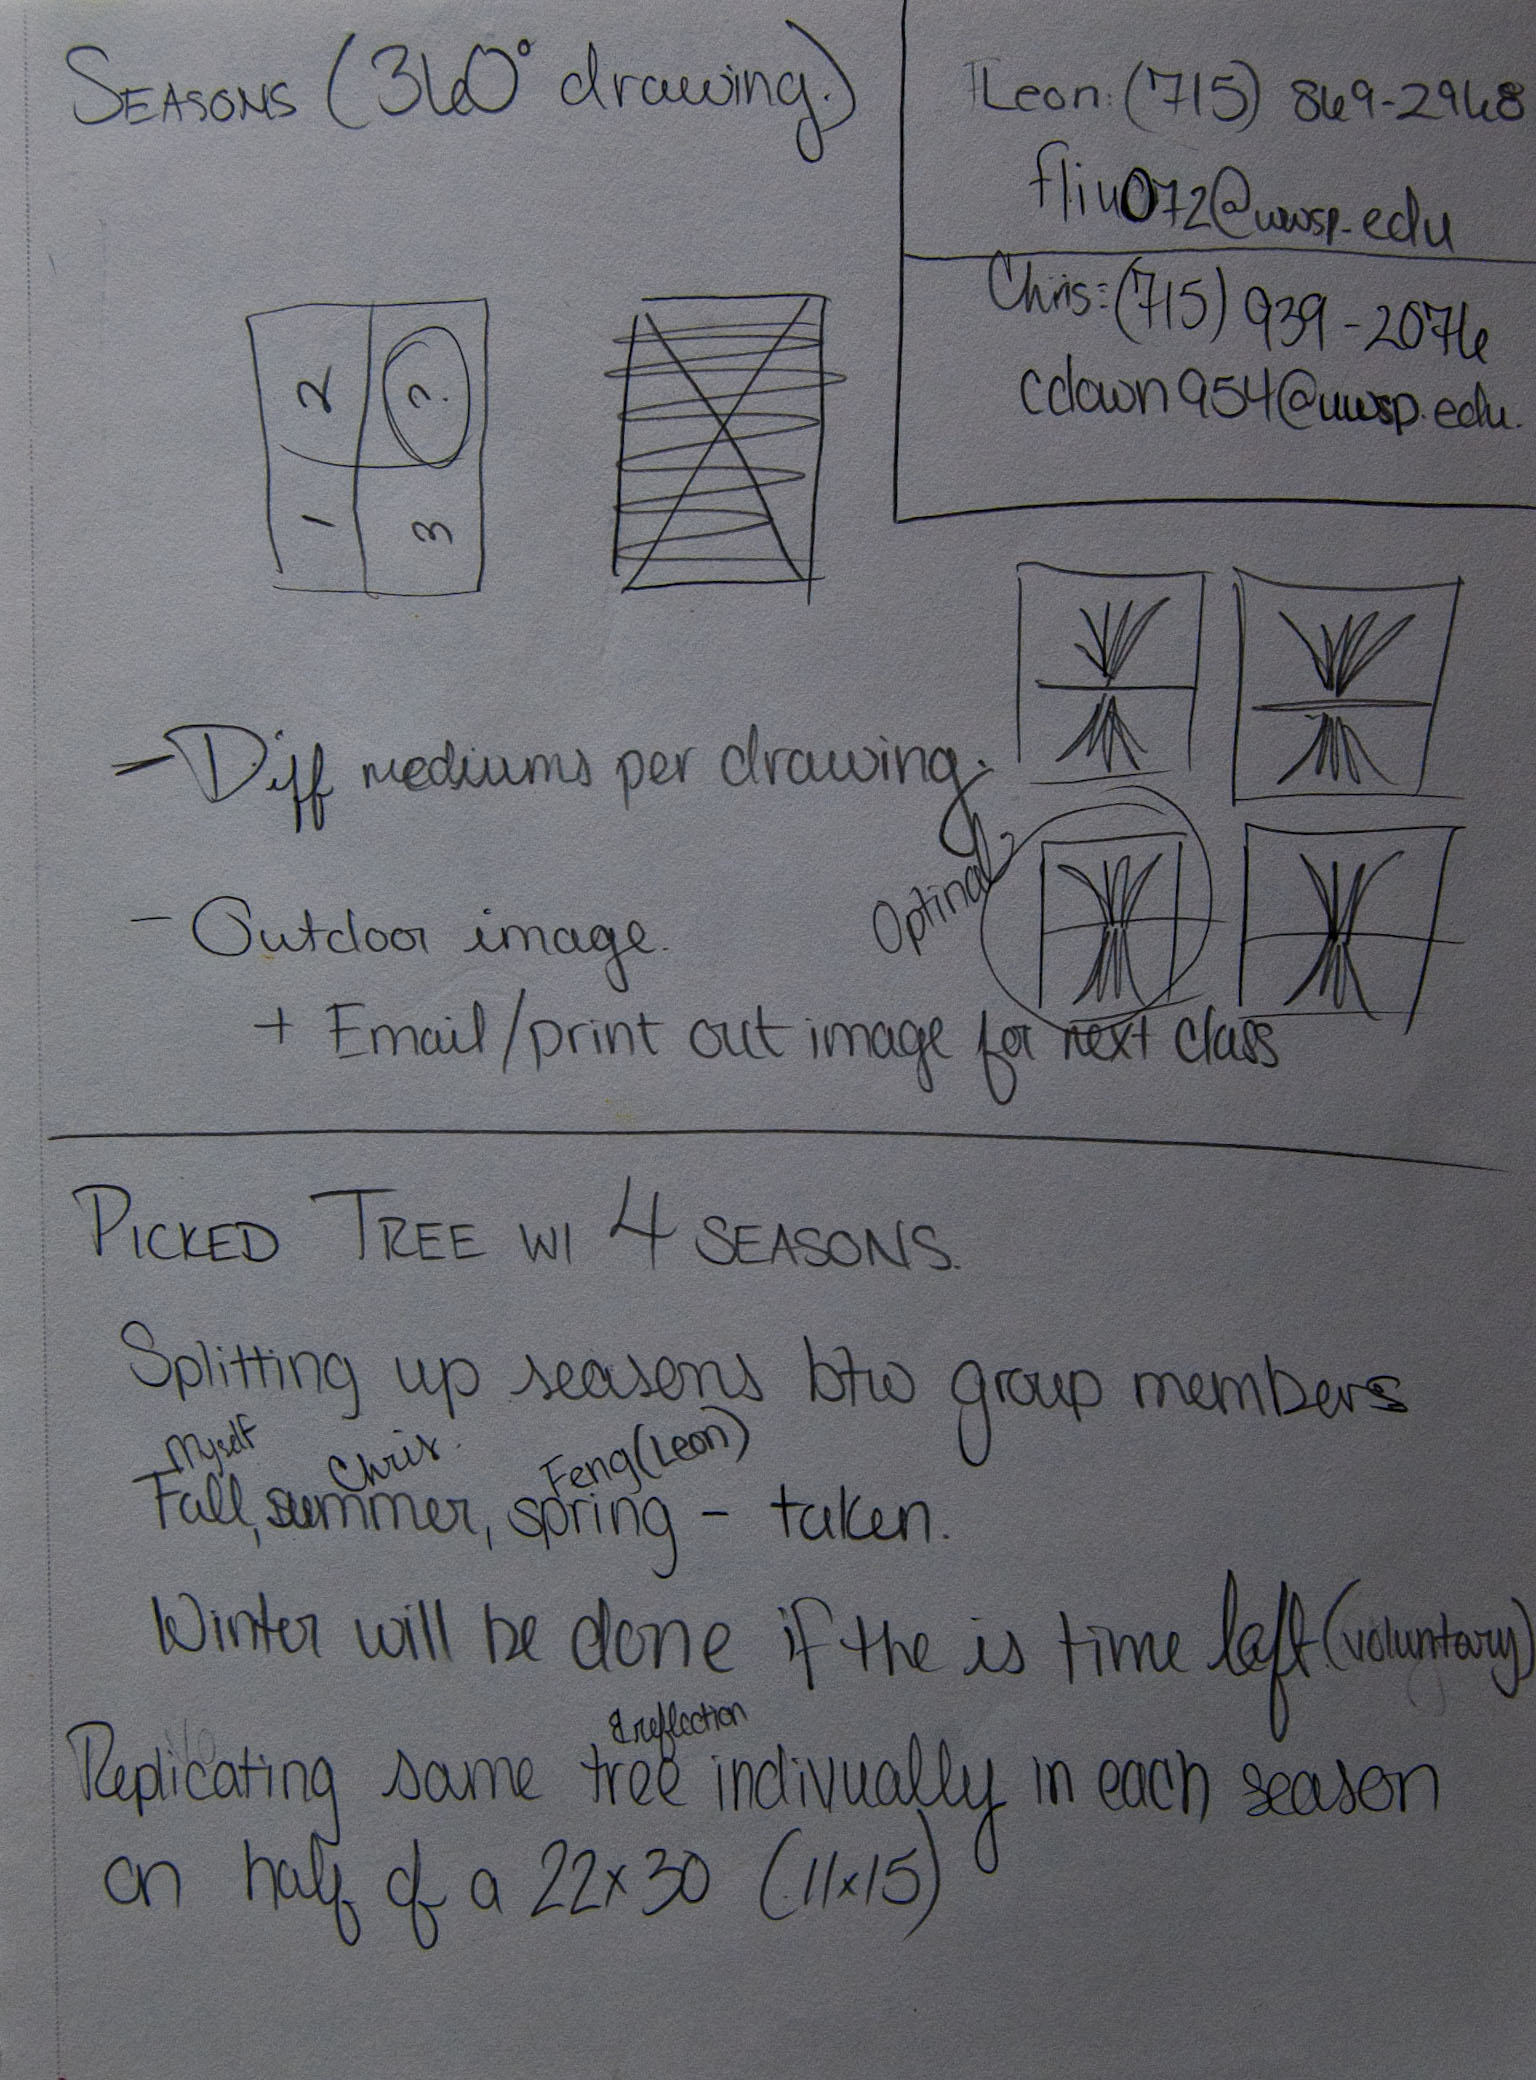 SEASONS (360° drawing.)
Leon: (715) 869-2968
fliu072@uwsp.edu
Chris: (715) 939-2076
cdown954@uwsp.edu.
2 ?
1 3
- Diff mediums per drawing.
Optinal
- Outdoor image.
+ Email/print out image for next class
PICKED TREE W/ 4 SEASONS.
Splitting up seasons btw group members
Myself Chris. Feng (Leon)
Fall, summer, spring - taken.
Winter will be done if the is time left. (voluntary)
& reflection
Replicating same tree indivually in each season
on half of a 22x30 (11x15)